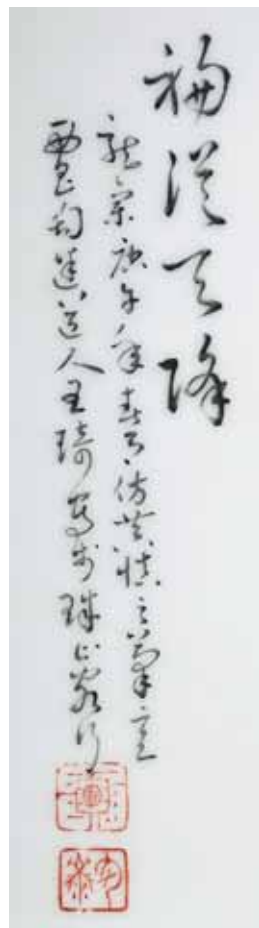 福從天降
庚午年春月仿黃慎之筆意
西昌匋迷道人王琦寫於珠山客